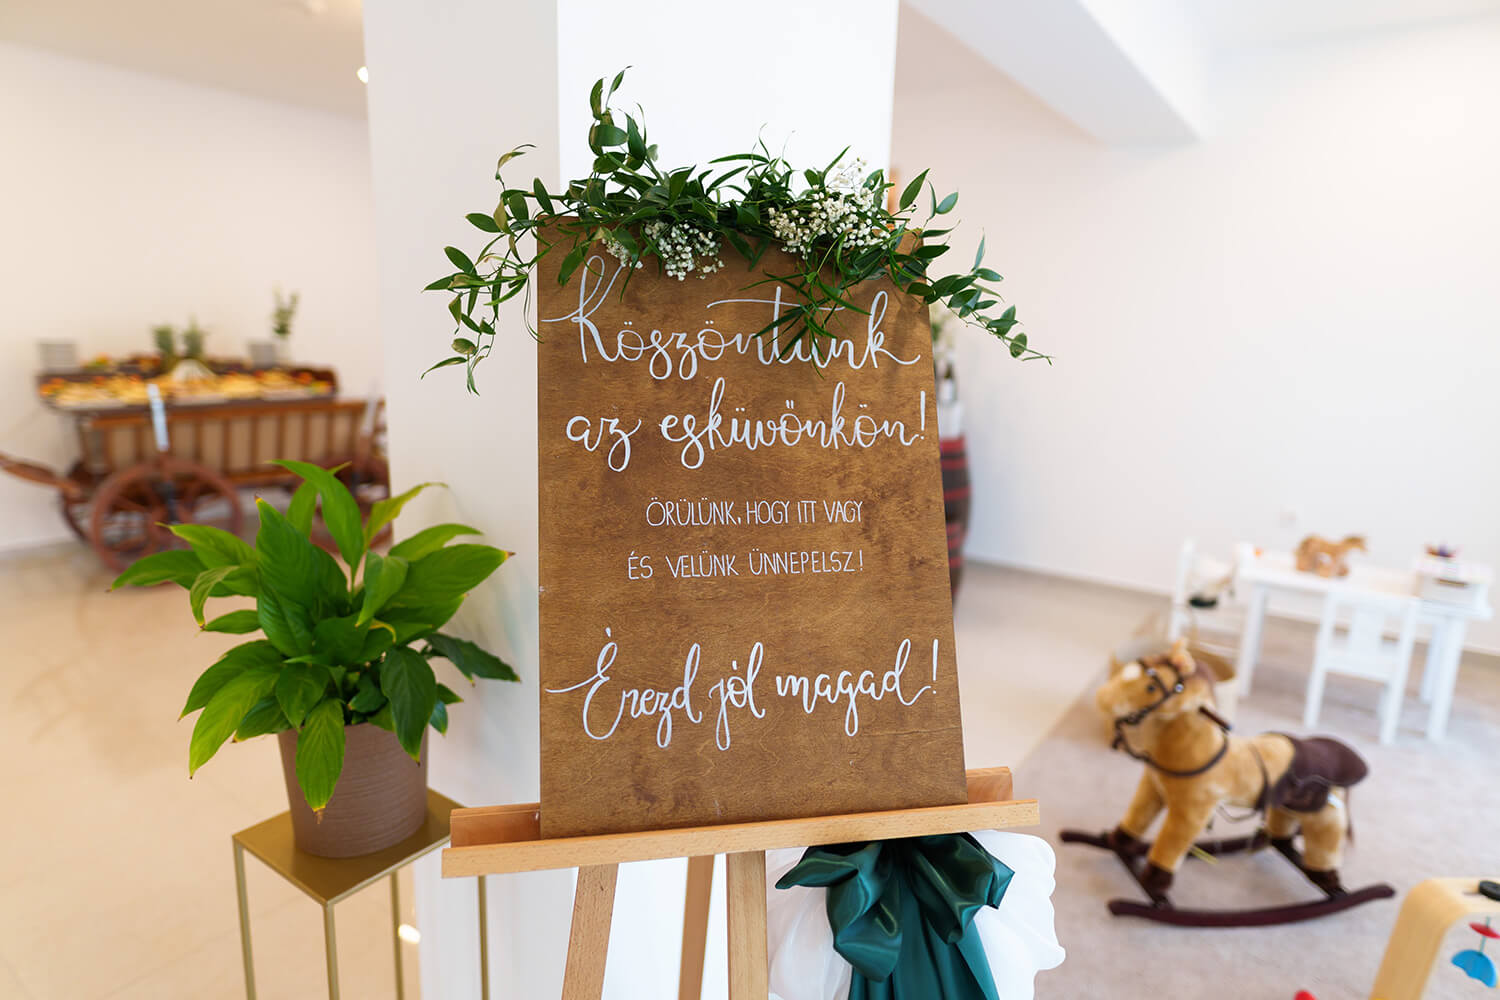 Köszöntünk
az esküvőnkön!
ÖRÜLÜNK, HOGY ITT VAGY
ÉS VELÜNK ÜNNEPELSZ!
Érezd jól magad!